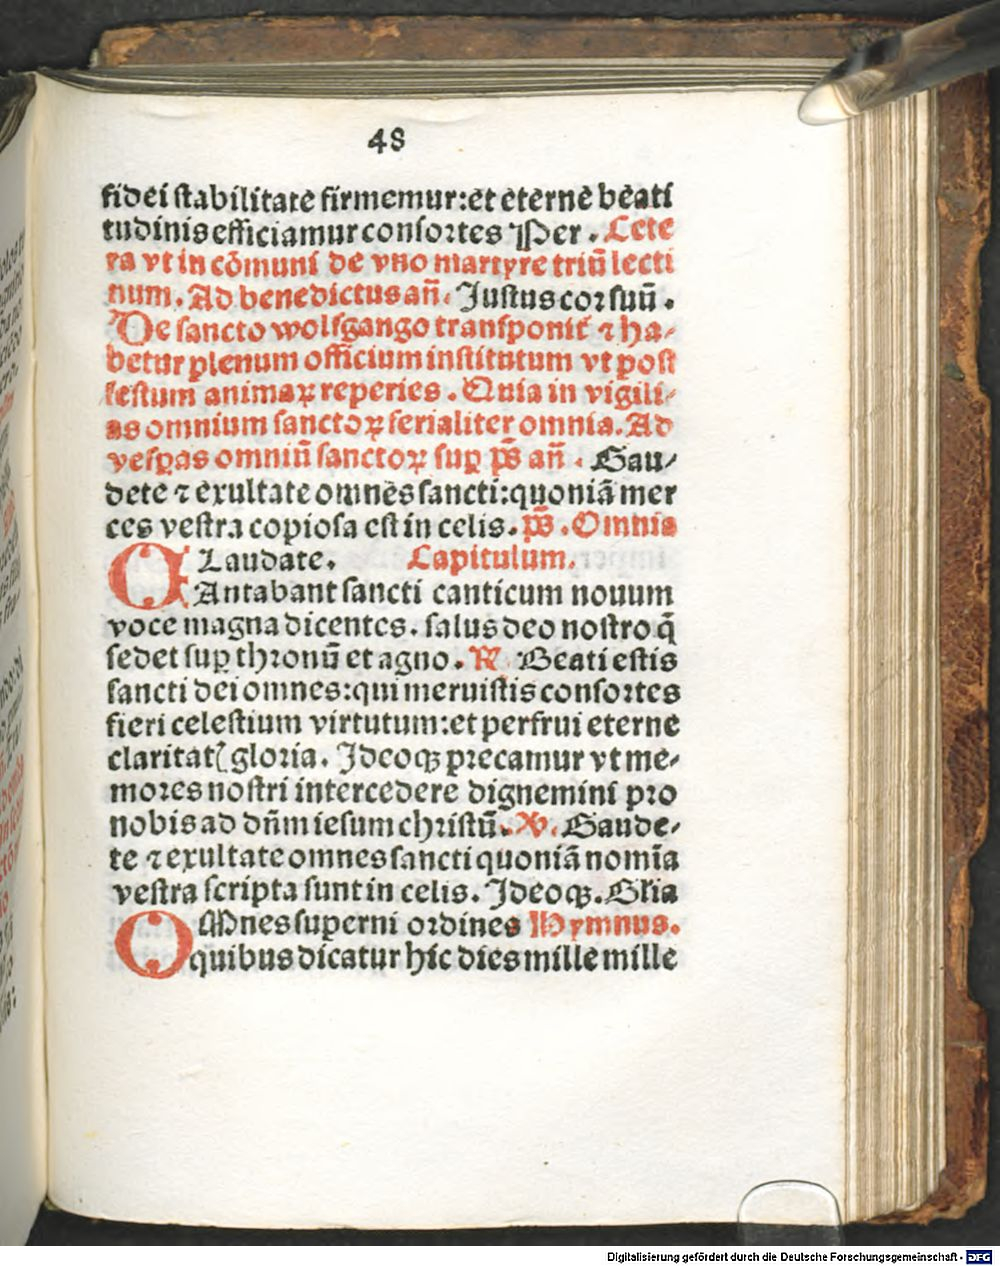 48
fidei stabilitate firmemur: et eterne beati
tudinis efficiamur consortes Per. Cete
ra vt in cōmuni de vno martyre triū lecti
num. Ad benedictus añ. Justus cor suū.
De sancto wolfgango transponit᷑ ⁊ ha-
betur plenum officium institutum vt post
festum animaꝝ reperies. Quia in vigili-
as omnium sanctoꝝ ferialiter omnia. Ad
vesꝑas omniū sanctoꝝ suꝑ p̄s añ. Gau/
dete ⁊ exultate omnes sancti: quoniā mer
ces vestra copiosa est in celis. p̄s. Omnia
Laudate. Capitulum.
CAntabant sancti canticum nouum
voce magna dicentes. salus deo nostro q̄
sedet suꝑ thronū et agno. ℟ Beati estis
sancti dei omnes: qui meruistis consortes
fieri celestium virtutum: et perfrui eterne
claritatꝭ gloria. Ideoqꝫ precamur vt me-
mores nostri intercedere dignemini pro
nobis ad dn̄m iesum christū. ℣. Gaude-
te ⁊ exultate omnes sancti quoniā nomīa
vestra scripta sunt in celis. Ideoqꝫ. Glīa
OMnes superni ordines Hymnus.
quibus dicatur hic dies mille mille
Digitalisierung gefördert durch die Deutsche Forschungsgemeinschaft - DFG